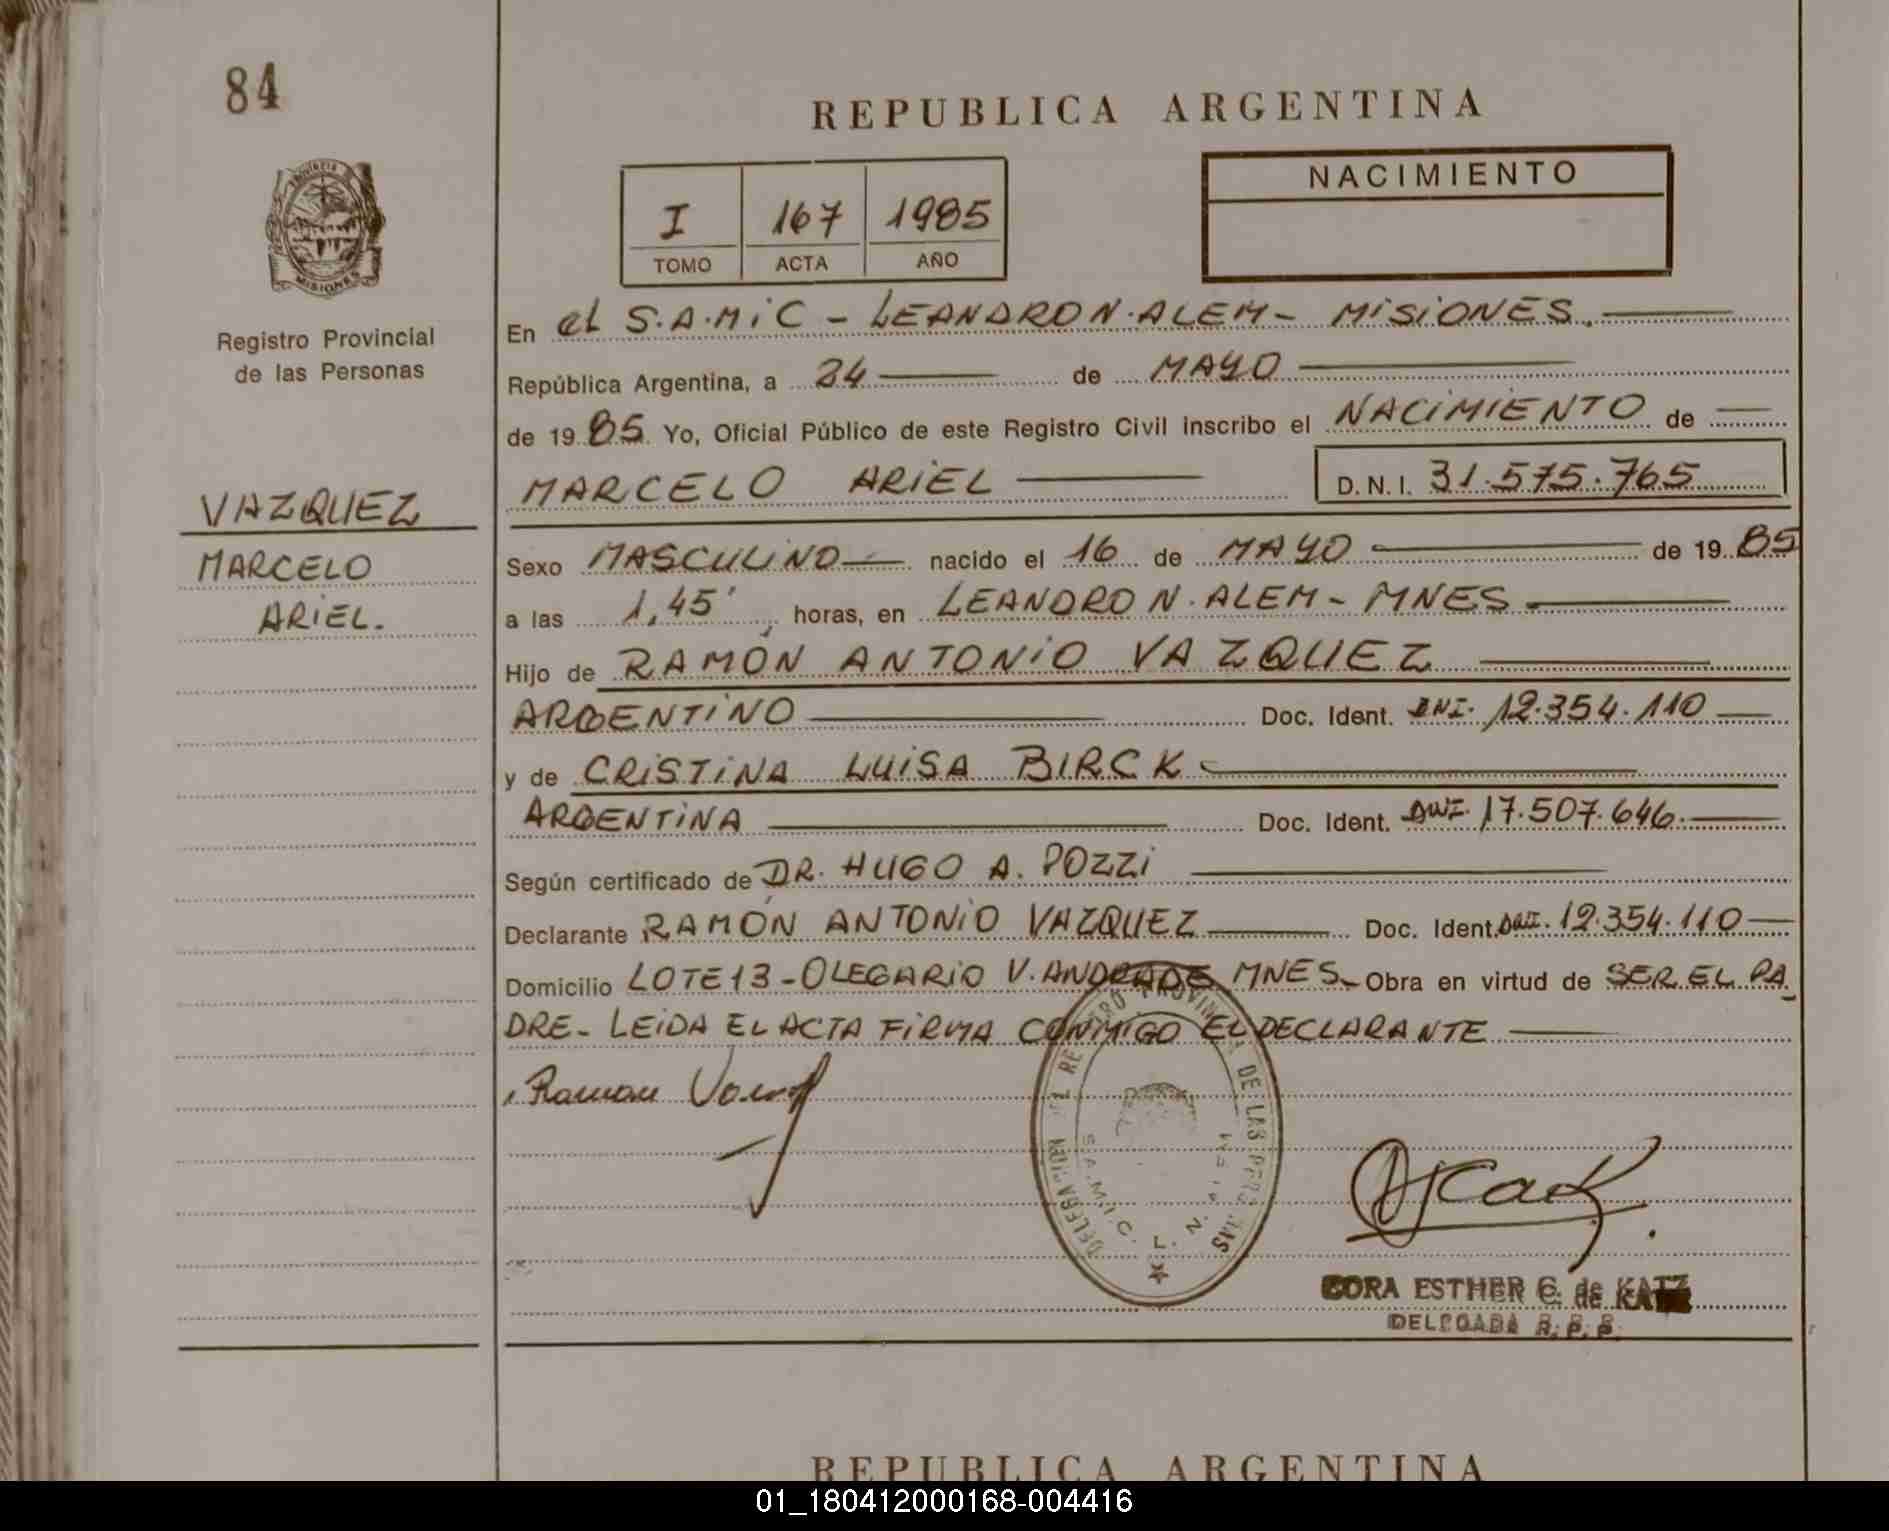 84
REPUBLICA ARGENTINA
PROVINCIA
MISIONES
Registro Provincial
de las Personas
I 167 1985
TOMO ACTA AÑO
NACIMIENTO
En el S.A.MiC - LEANDRO N. ALEM - MISIONES.
República Argentina, a 24 de MAYO
de 1985 Yo, Oficial Público de este Registro Civil inscribo el NACIMIENTO de
MARCELO ARIEL D.N.I. 31.575.765
VAZQUEZ
MARCELO
ARIEL.
Sexo MASCULINO nacido el 16 de MAYO de 1985
a las 1,45' horas, en LEANDRO N. ALEM - MNES
Hijo de RAMÓN ANTONIO VAZQUEZ
ARGENTINO Doc. Ident. DNI. 12.354.110
y de CRISTINA LUISA BIRCK
ARGENTINA Doc. Ident. DNI. 17.507.646.
Según certificado de DR. HUGO A. POZZI
Declarante RAMÓN ANTONIO VAZQUEZ Doc. Ident. DNI. 12.354.110
Domicilio LOTE 13 - OLEGARIO V. ANDRADE MNES - Obra en virtud de SER EL PA
DRE - LEIDA EL ACTA FIRMA CONMIGO EL DECLARANTE
Ramon
S.A.M.I.C. L. N.
CORA ESTHER C. de KATZ
DELEGADA R. P. P.
REPUBLICA ARGENTINA
01_180412000168-004416